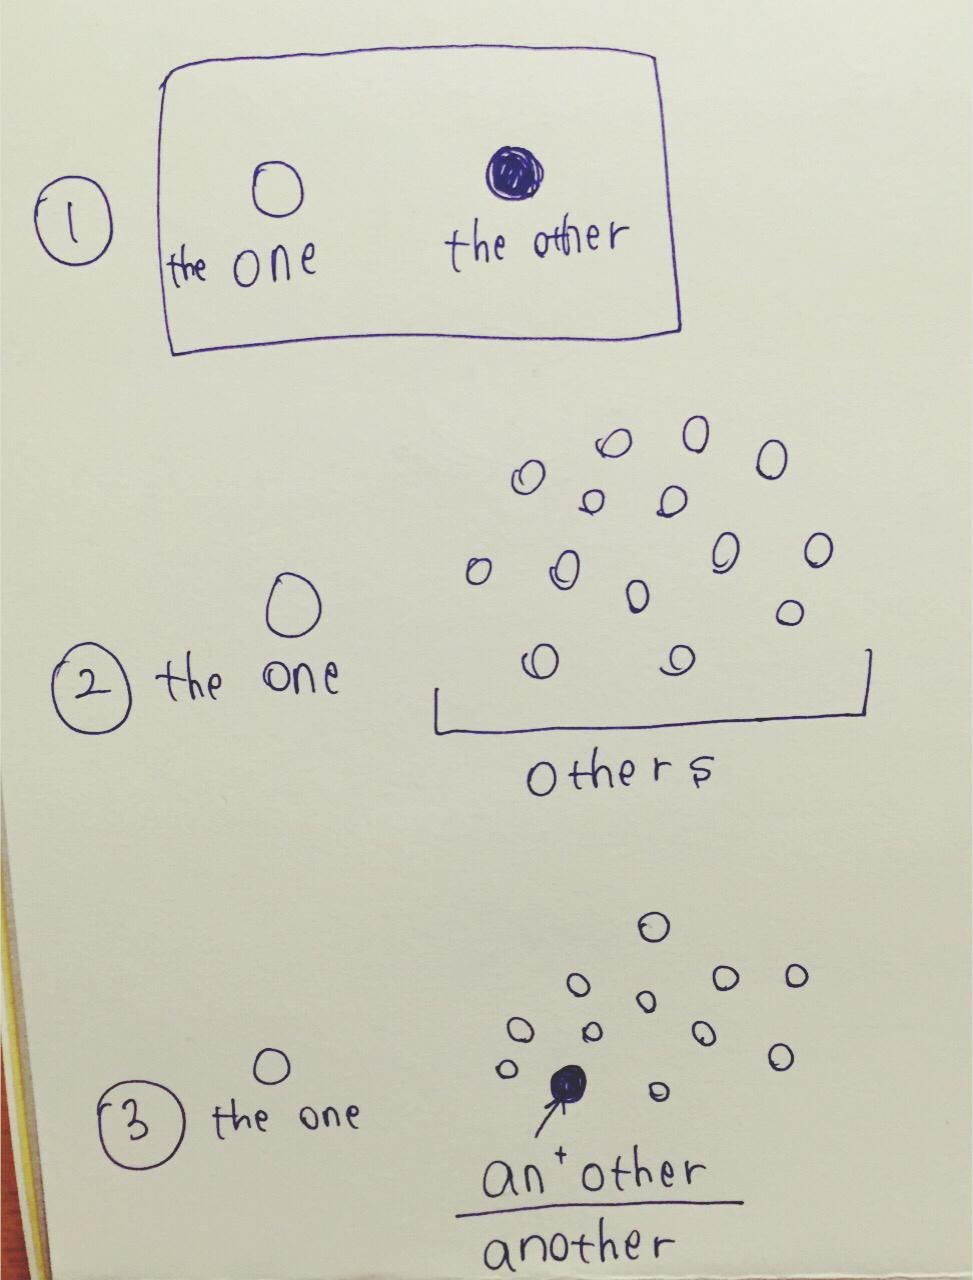 1
the one the other
2 the one
others
3 the one
an+other
another